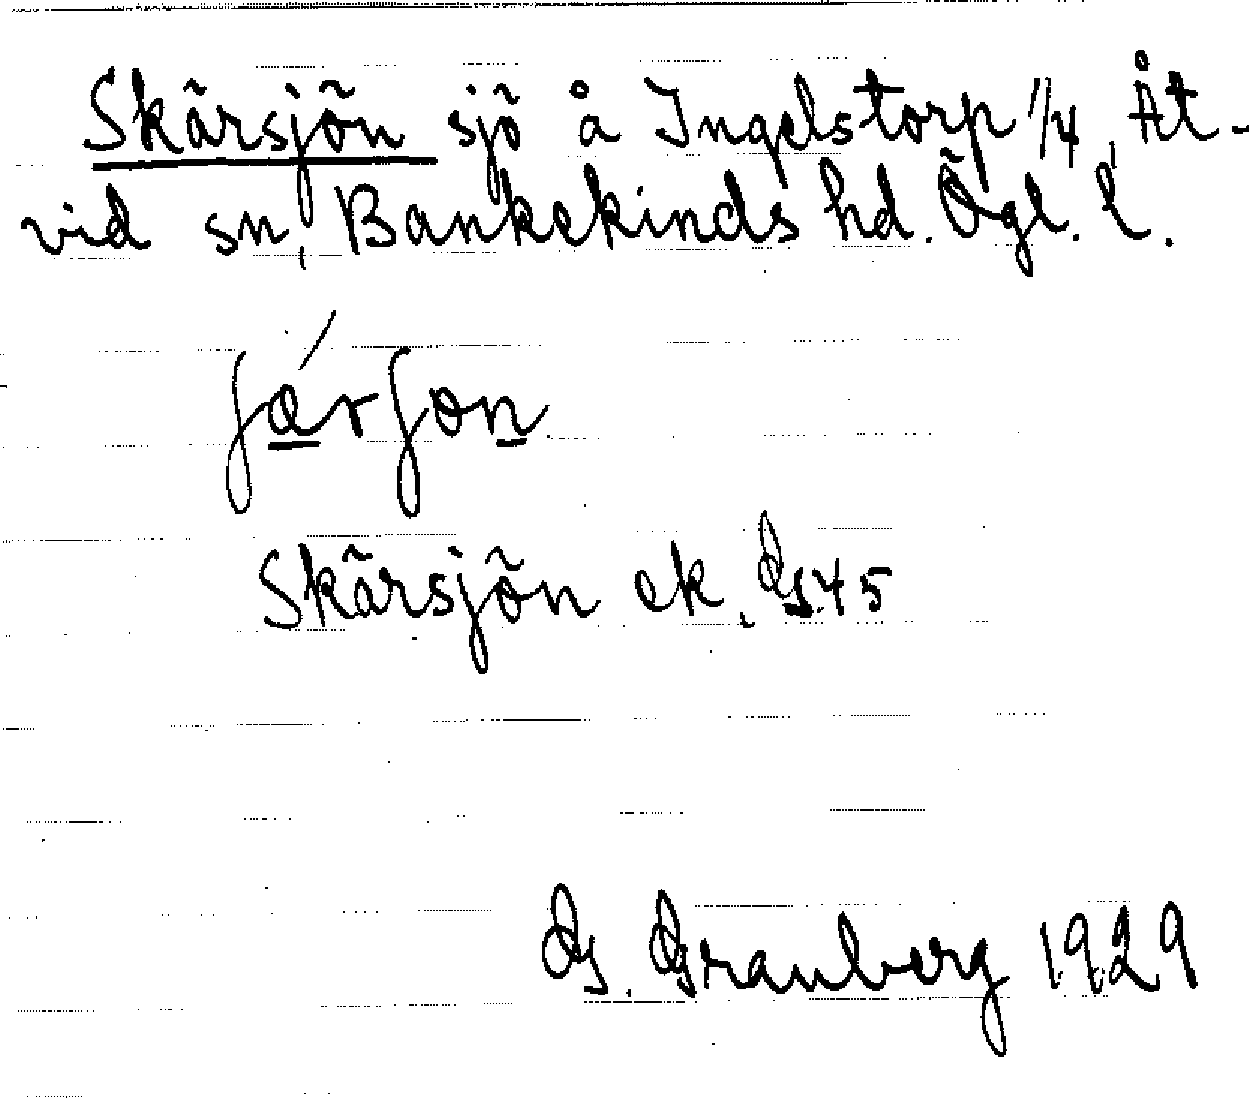 Skärsjön sjö å Ingelstorp 1/4, Åt-
vid sn, Bankekinds hd. Ögl. l.
Skärsjön ek. G 45
G. Granberg 1929